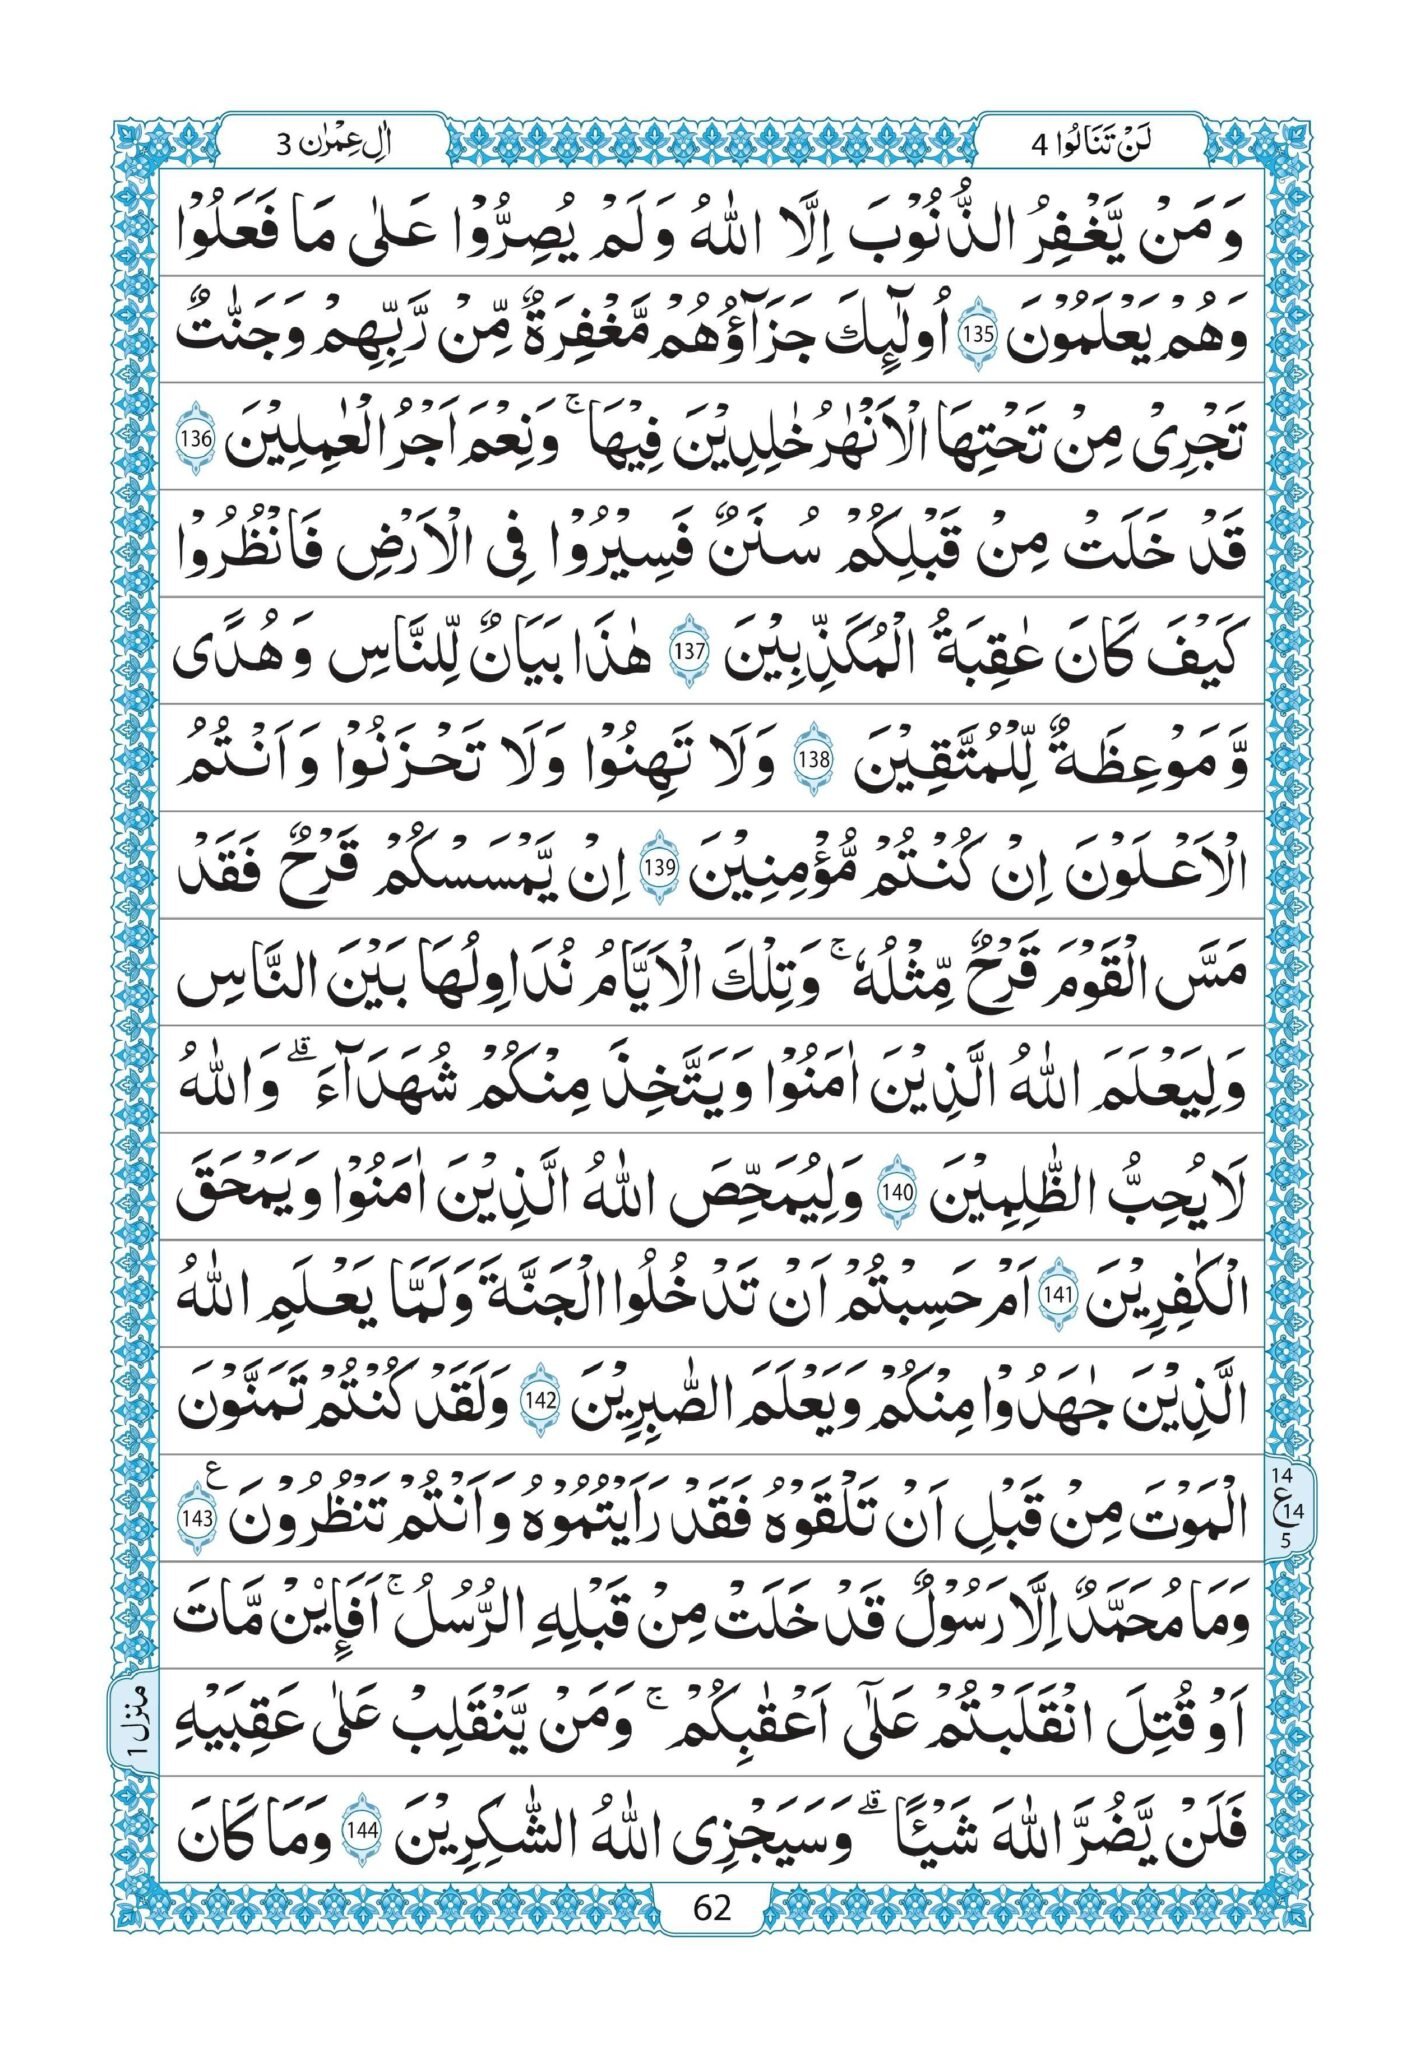 لَنْ تَنَالُوا 4
اٰلِ عِمْرٰن 3
وَمَنْ يَّغْفِرُ الذُّنُوْبَ اِلَّا اللّٰهُ وَلَمْ يُصِرُّوْا عَلٰى مَا فَعَلُوْا
وَهُمْ يَعْلَمُوْنَ 135 اُولٰٓئِكَ جَزَآؤُهُمْ مَّغْفِرَةٌ مِّنْ رَّبِّهِمْ وَجَنّٰتٌ
تَجْرِىْ مِنْ تَحْتِهَا الْاَنْهٰرُ خٰلِدِيْنَ فِيْهَا ۚ وَنِعْمَ اَجْرُ الْعٰمِلِيْنَ 136
قَدْ خَلَتْ مِنْ قَبْلِكُمْ سُنَنٌ فَسِيْرُوْا فِى الْاَرْضِ فَانْظُرُوْا
كَيْفَ كَانَ عٰقِبَةُ الْمُكَذِّبِيْنَ 137 هٰذَا بَيَانٌ لِّلنَّاسِ وَهُدًى
وَّمَوْعِظَةٌ لِّلْمُتَّقِيْنَ 138 وَلَا تَهِنُوْا وَلَا تَحْزَنُوْا وَاَنْتُمُ
الْاَعْلَوْنَ اِنْ كُنْتُمْ مُّؤْمِنِيْنَ 139 اِنْ يَّمْسَسْكُمْ قَرْحٌ فَقَدْ
مَسَّ الْقَوْمَ قَرْحٌ مِّثْلُهٗ ۚ وَتِلْكَ الْاَيَّامُ نُدَاوِلُهَا بَيْنَ النَّاسِ
وَلِيَعْلَمَ اللّٰهُ الَّذِيْنَ اٰمَنُوْا وَيَتَّخِذَ مِنْكُمْ شُهَدَآءَ ۗ وَاللّٰهُ
لَا يُحِبُّ الظّٰلِمِيْنَ 140 وَلِيُمَحِّصَ اللّٰهُ الَّذِيْنَ اٰمَنُوْا وَيَمْحَقَ
الْكٰفِرِيْنَ 141 اَمْ حَسِبْتُمْ اَنْ تَدْخُلُوا الْجَنَّةَ وَلَمَّا يَعْلَمِ اللّٰهُ
الَّذِيْنَ جٰهَدُوْا مِنْكُمْ وَيَعْلَمَ الصّٰبِرِيْنَ 142 وَلَقَدْ كُنْتُمْ تَمَنَّوْنَ
الْمَوْتَ مِنْ قَبْلِ اَنْ تَلْقَوْهُ فَقَدْ رَاَيْتُمُوْهُ وَاَنْتُمْ تَنْظُرُوْنَ ع 143
14
ع 14
5
وَمَا مُحَمَّدٌ اِلَّا رَسُوْلٌ قَدْ خَلَتْ مِنْ قَبْلِهِ الرُّسُلُ ۚ اَفَا۟ئِنْ مَّاتَ
اَوْ قُتِلَ انْقَلَبْتُمْ عَلٰٓى اَعْقٰبِكُمْ ۚ وَمَنْ يَّنْقَلِبْ عَلٰى عَقِبَيْهِ
منزل 1
فَلَنْ يَّضُرَّ اللّٰهَ شَيْـًٔا ۗ وَسَيَجْزِى اللّٰهُ الشّٰكِرِيْنَ 144 وَمَا كَانَ
62